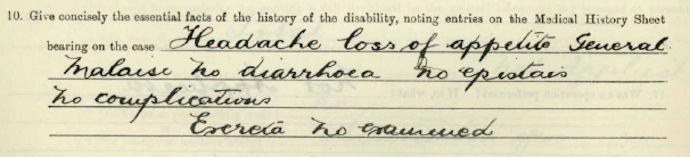 10. Give concisely the essential facts of the history of the disability, noting entries on the Medical History Sheet
bearing on the case Headache loss of appetite General
Malaise no diarrhoea no epistais
no complications
Excreta no examined